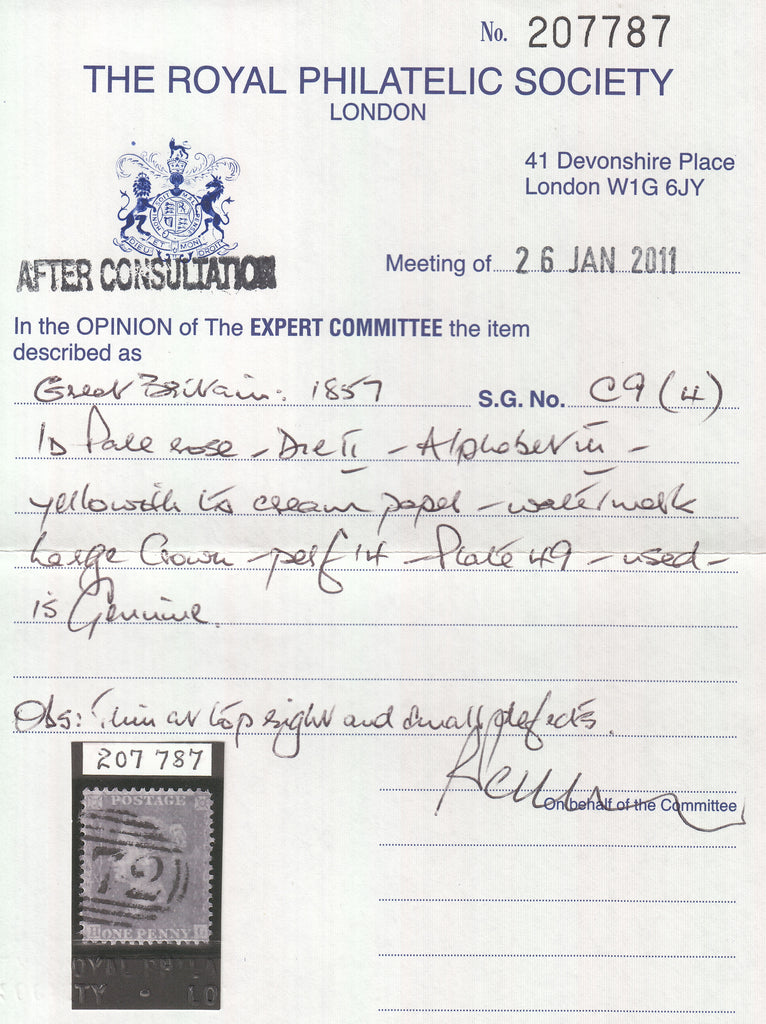 No. 207787
THE ROYAL PHILATELIC SOCIETY
LONDON
41 Devonshire Place
London W1G 6JY
DIEU ET MON DROIT
AFTER CONSULTATION
Meeting of 26 JAN 2011
In the OPINION of The EXPERT COMMITTEE the item
described as
Great Britain: 1857 S.G. No. C9 (4)
1D Pale rose - Die II - Alphabet III -
yellowish to cream paper - watermark
Large Crown - perf 14 - Plate 49 - used -
is Genuine.
Obs: Thin at top right and small defects.
On behalf of the Committee
207 787
POSTAGE
72
H ONE PENNY
OYAL PHILA
TY - LO